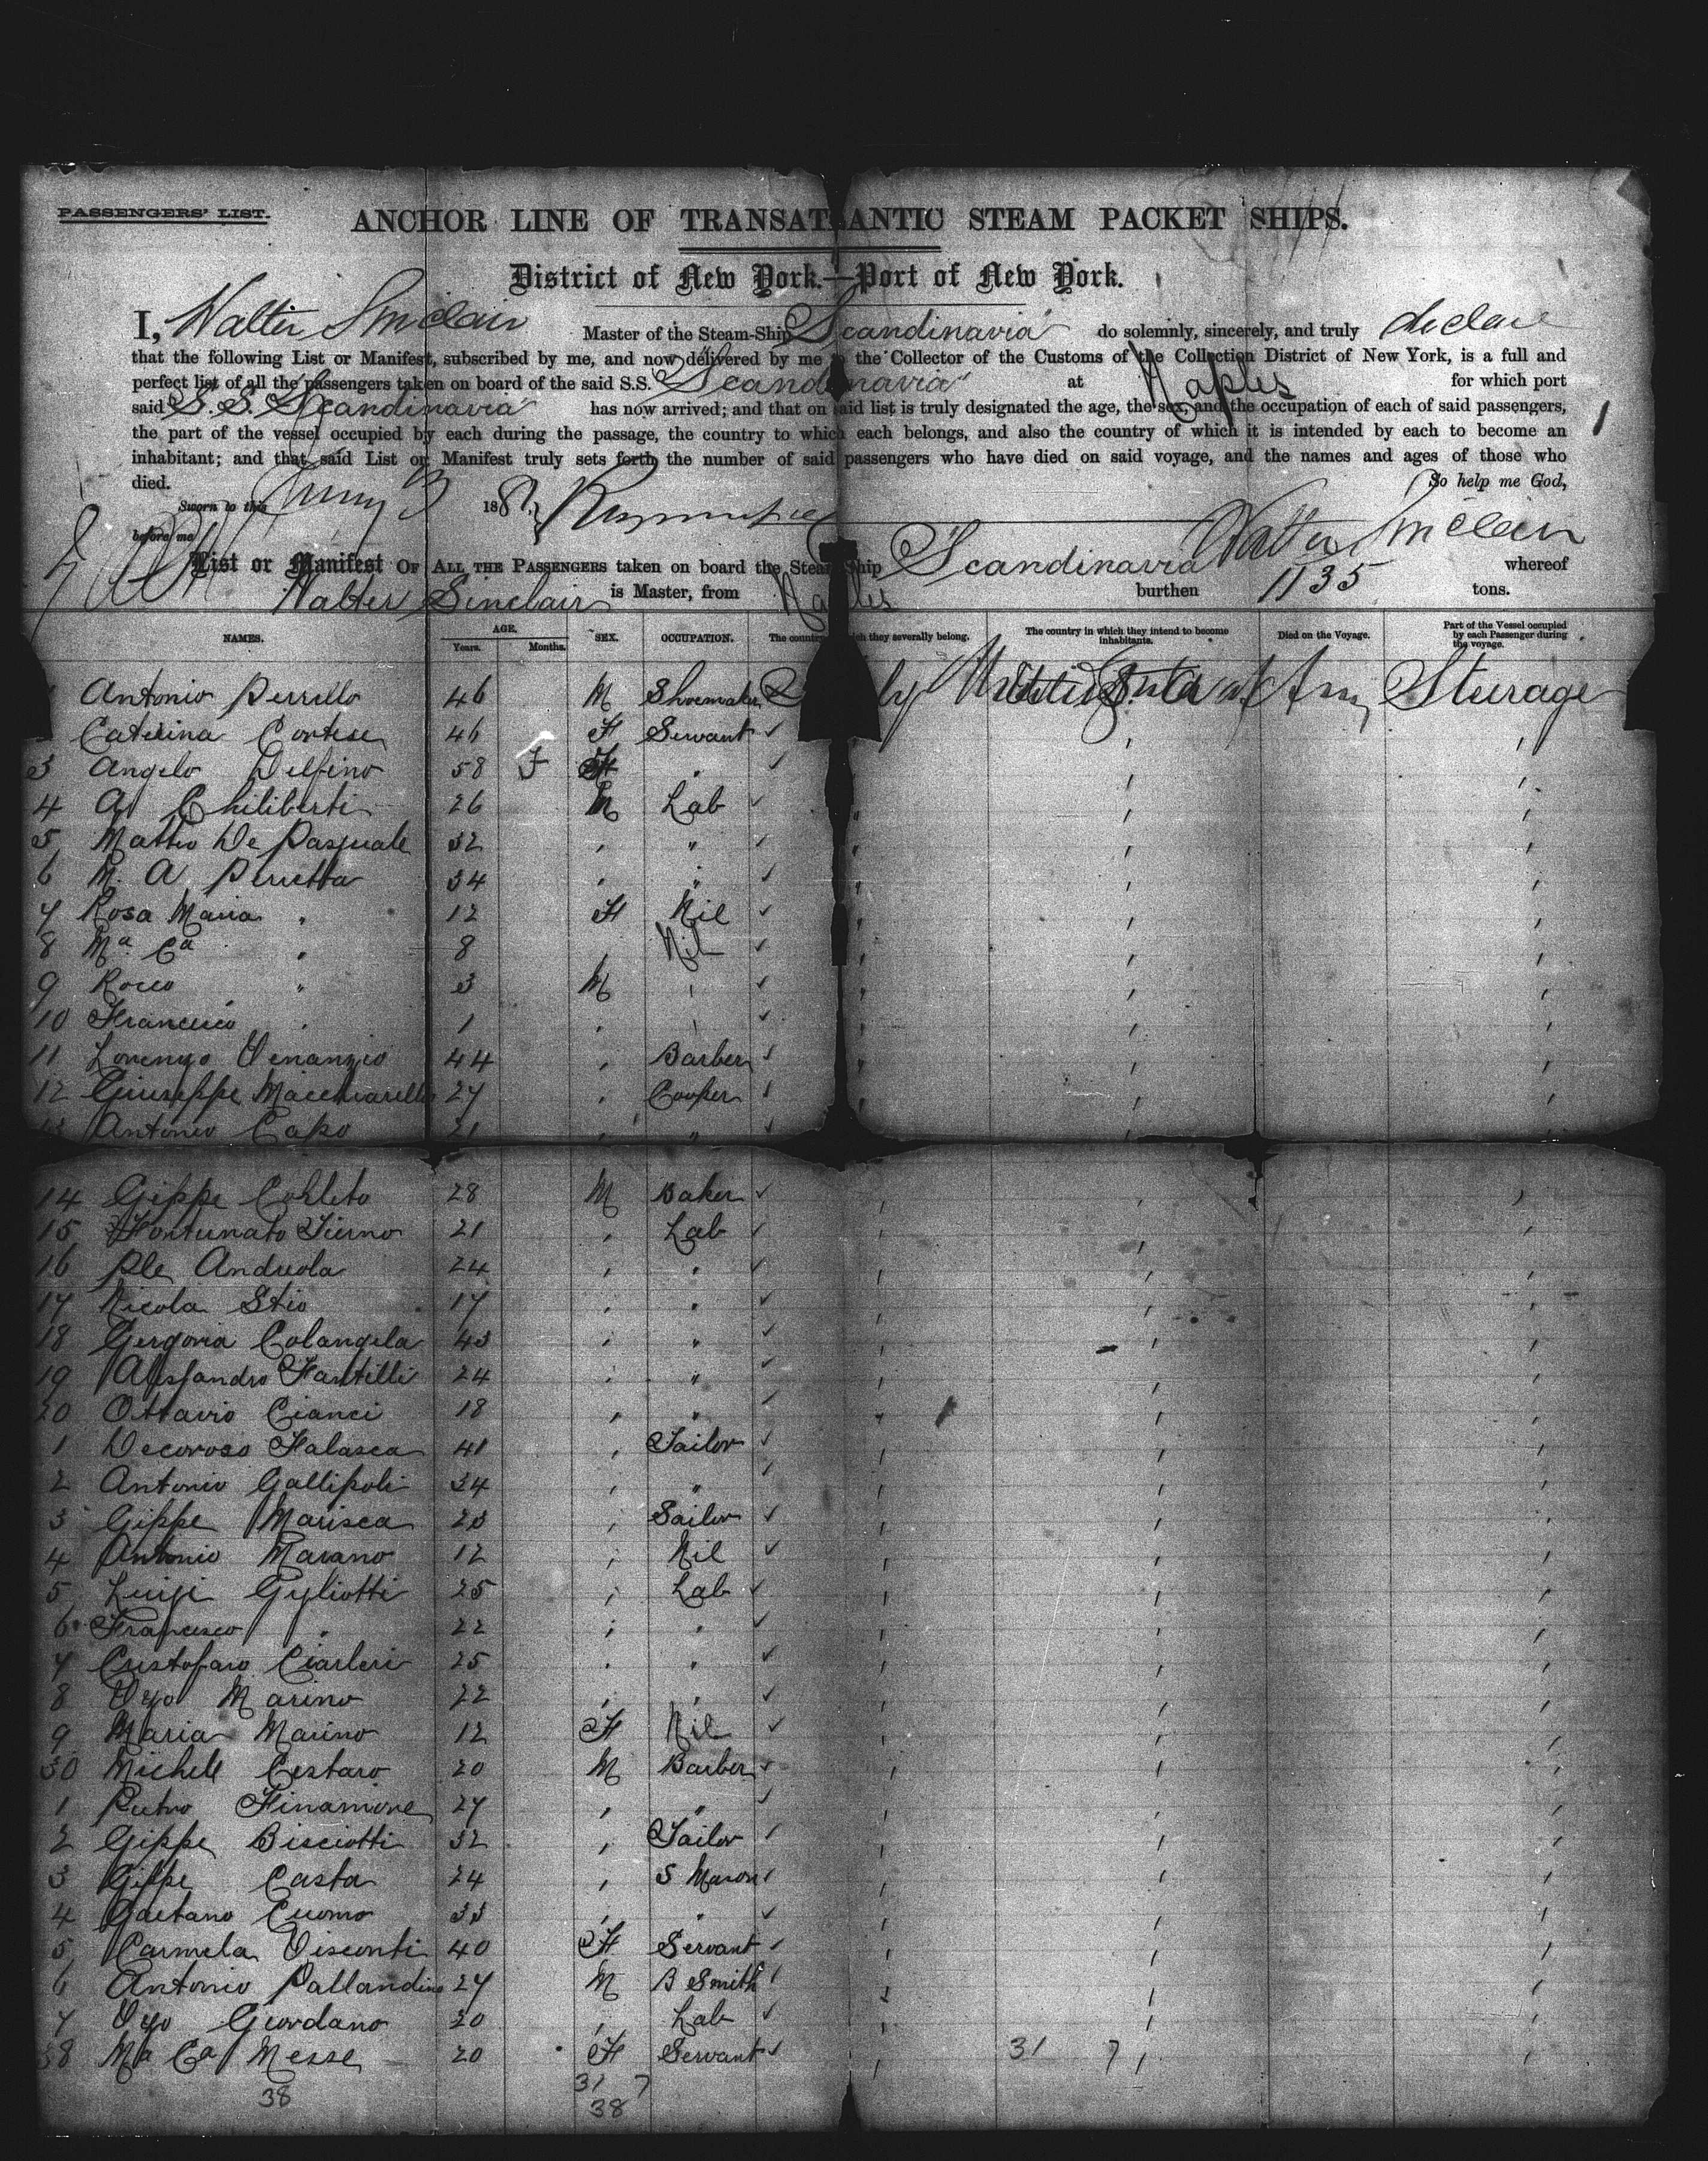 PASSENGERS' LIST.
ANCHOR LINE OF TRANSATLANTIC STEAM PACKET SHIPS.
District of New York.—Port of New York.
I, Walter Sinclair Master of the Steam-Ship "Scandinavia" do solemnly, sincerely, and truly declare
that the following List or Manifest, subscribed by me, and now delivered by me to the Collector of the Customs of the Collection District of New York, is a full and
perfect list of all the passengers taken on board of the said S.S. "Scandinavia" at Naples for which port
said S.S. Scandinavia has now arrived; and that on said list is truly designated the age, the sex, and the occupation of each of said passengers,
the part of the vessel occupied by each during the passage, the country to which each belongs, and also the country of which it is intended by each to become an
inhabitant; and that said List or Manifest truly sets forth the number of said passengers who have died on said voyage, and the names and ages of those who
died. So help me God,
Sworn to this 188
before me Walter Sinclair
List or Manifest OF ALL THE PASSENGERS taken on board the Steam Ship Scandinavia whereof
Walter Sinclair is Master, from Naples burthen 1135 tons.
NAMES. AGE. Years. Months. SEX. OCCUPATION. The country to which they severally belong. The country in which they intend to become inhabitants. Died on the Voyage. Part of the Vessel occupied by each Passenger during the voyage.
Antonio Perrillo 46 M Shoemaker Italy United States of Am Steerage
Caterina Cortese 46 F Servant ✓
3 Angelo Delfino 58 F " ✓
4 A Chiliberti 26 M Lab ✓
5 Matteo De Pasquale 32 " " ✓
6 M. A Perretta 34 " " ✓
7 Rosa Maria " 12 F Nil ✓
8 Ma Ca " 8 " Nil ✓
9 Rocco " 3 M " ✓
10 Francesco " 1 " " ✓
11 Lorenzo Venanzio 44 " Barber ✓
12 Giuseppe Macchiarello 27 " Cooper ✓
13 Antonio Capo 21 " " ✓
14 Gippe Cobleto 28 M Baker ✓
15 Fortunato Tierno 21 " Lab ✓
16 Ple Andreola 24 " " ✓
17 Nicola Stio 17 " " ✓
18 Gergoria Colangela 43 " " ✓
19 Alessandro Fantilli 24 " " ✓
20 Ottavio Cianci 18 " " ✓
1 Decoroso Falasca 41 " Tailor ✓
2 Antonio Gallipoli 34 " " ✓
3 Gippe Marisca 23 " Sailor ✓
4 Antonio Marano 12 " Nil ✓
5 Luigi Gigliotti 25 " Lab ✓
6 Francesco " 22 " " ✓
7 Cristofaro Ciarleri 25 " " ✓
8 Vzo Marino 22 " " ✓
9 Maria Marino 12 F Nil ✓
30 Michele Cestaro 20 M Barber ✓
1 Pietro Finamore 27 " " ✓
2 Gippe Bisciotti 32 " Tailor ✓
3 Gippe Casta 24 " S Mason ✓
4 Gaetano Cuomo 33 " " ✓
5 Carmela Visconti 40 F Servant ✓
6 Antonio Pallandino 27 M B Smith ✓
7 Vzo Giordano 20 " Lab ✓
38 Ma Ca Messe 20 F Servant ✓ 31 7
38 31 7
38